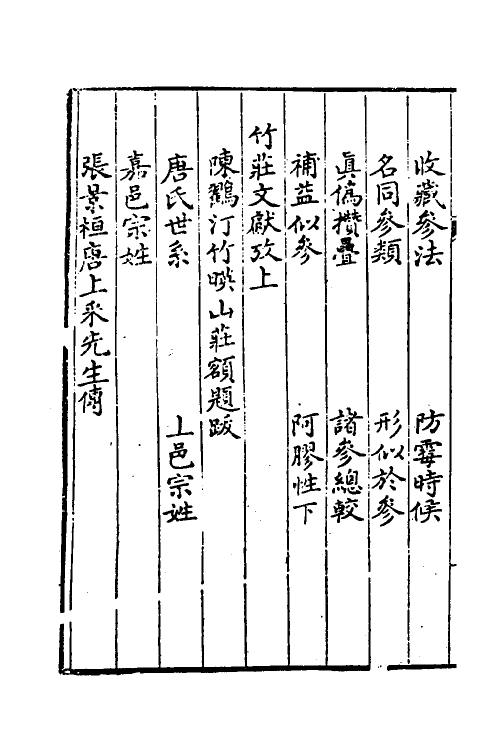 收藏參法　防霉時候
名同參類　形似於參
眞僞攢疊　諸參總較
補益似參　阿膠性下
竹莊文獻攷上
陳鶴汀竹暎山莊額題跋
唐氏世系　上邑宗姓
嘉邑宗姓
張景桓唐上釆先生傳